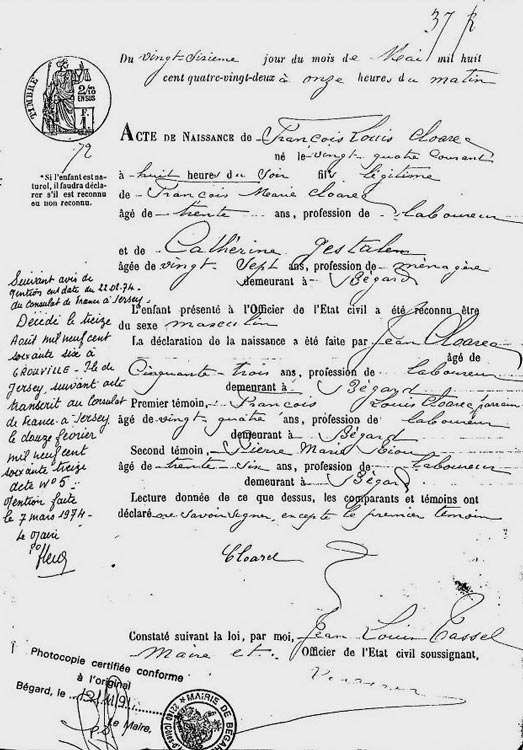 37
Du vingt-sixième jour du mois de Mai mil huit
cent quatre-vingt-deux à onze heures du matin
TIMBRE
2/10
EN SUS
F.
72
ACTE DE NAISSANCE de François Louis Cloarec
né le vingt quatre courant
*Si l'enfant est na-
turel, il faudra décla-
rer s'il est reconnu
ou non reconnu.
à huit heures du soir fils légitime
de François Marie Cloarec
âgé de trente ans, profession de laboureur
et de Cathérine Gestalem
âgée de vingt sept ans, profession de ménagère
demeurant à Bégard
L'enfant présenté à l'Officier de l'Etat civil a été reconnu être
du sexe masculin
La déclaration de la naissance a été faite par Jean Cloarec
âgé de
Cinquante-trois ans, profession de laboureur
demeurant à Bégard
Premier témoin, François Louis Cloarec parrain
âgé de vingt quatre ans, profession de laboureur
demeurant à Bégard
Second témoin, Pierre Marie
âgé de trente six ans, profession de laboureur
demeurant à Bégard
Lecture donnée de ce que dessus, les comparants et témoins ont
déclaré ne savoir signer, excepté le premier témoin
Suivant avis de
mention en date du 22.01.74.
du Consulat de France à Jersey.
Décédé le treize
Août mil neuf cent
soixante six à
GROUVILLE - Ile de
Jersey, suivant acte
transcrit au Consulat
de France à Jersey
le douze février
mil neuf cent
soixante treize
acte N° 5.
Mention faite
le 7 mars 1974.
Le Maire
Cloarec
Constaté suivant la loi, par moi, Jean Louis Tassel
Maire et Officier de l'Etat civil soussignant,
Photocopie certifiée conforme
à l'original
Bégard, le
Le Maire,
MAIRIE DE BEGARD